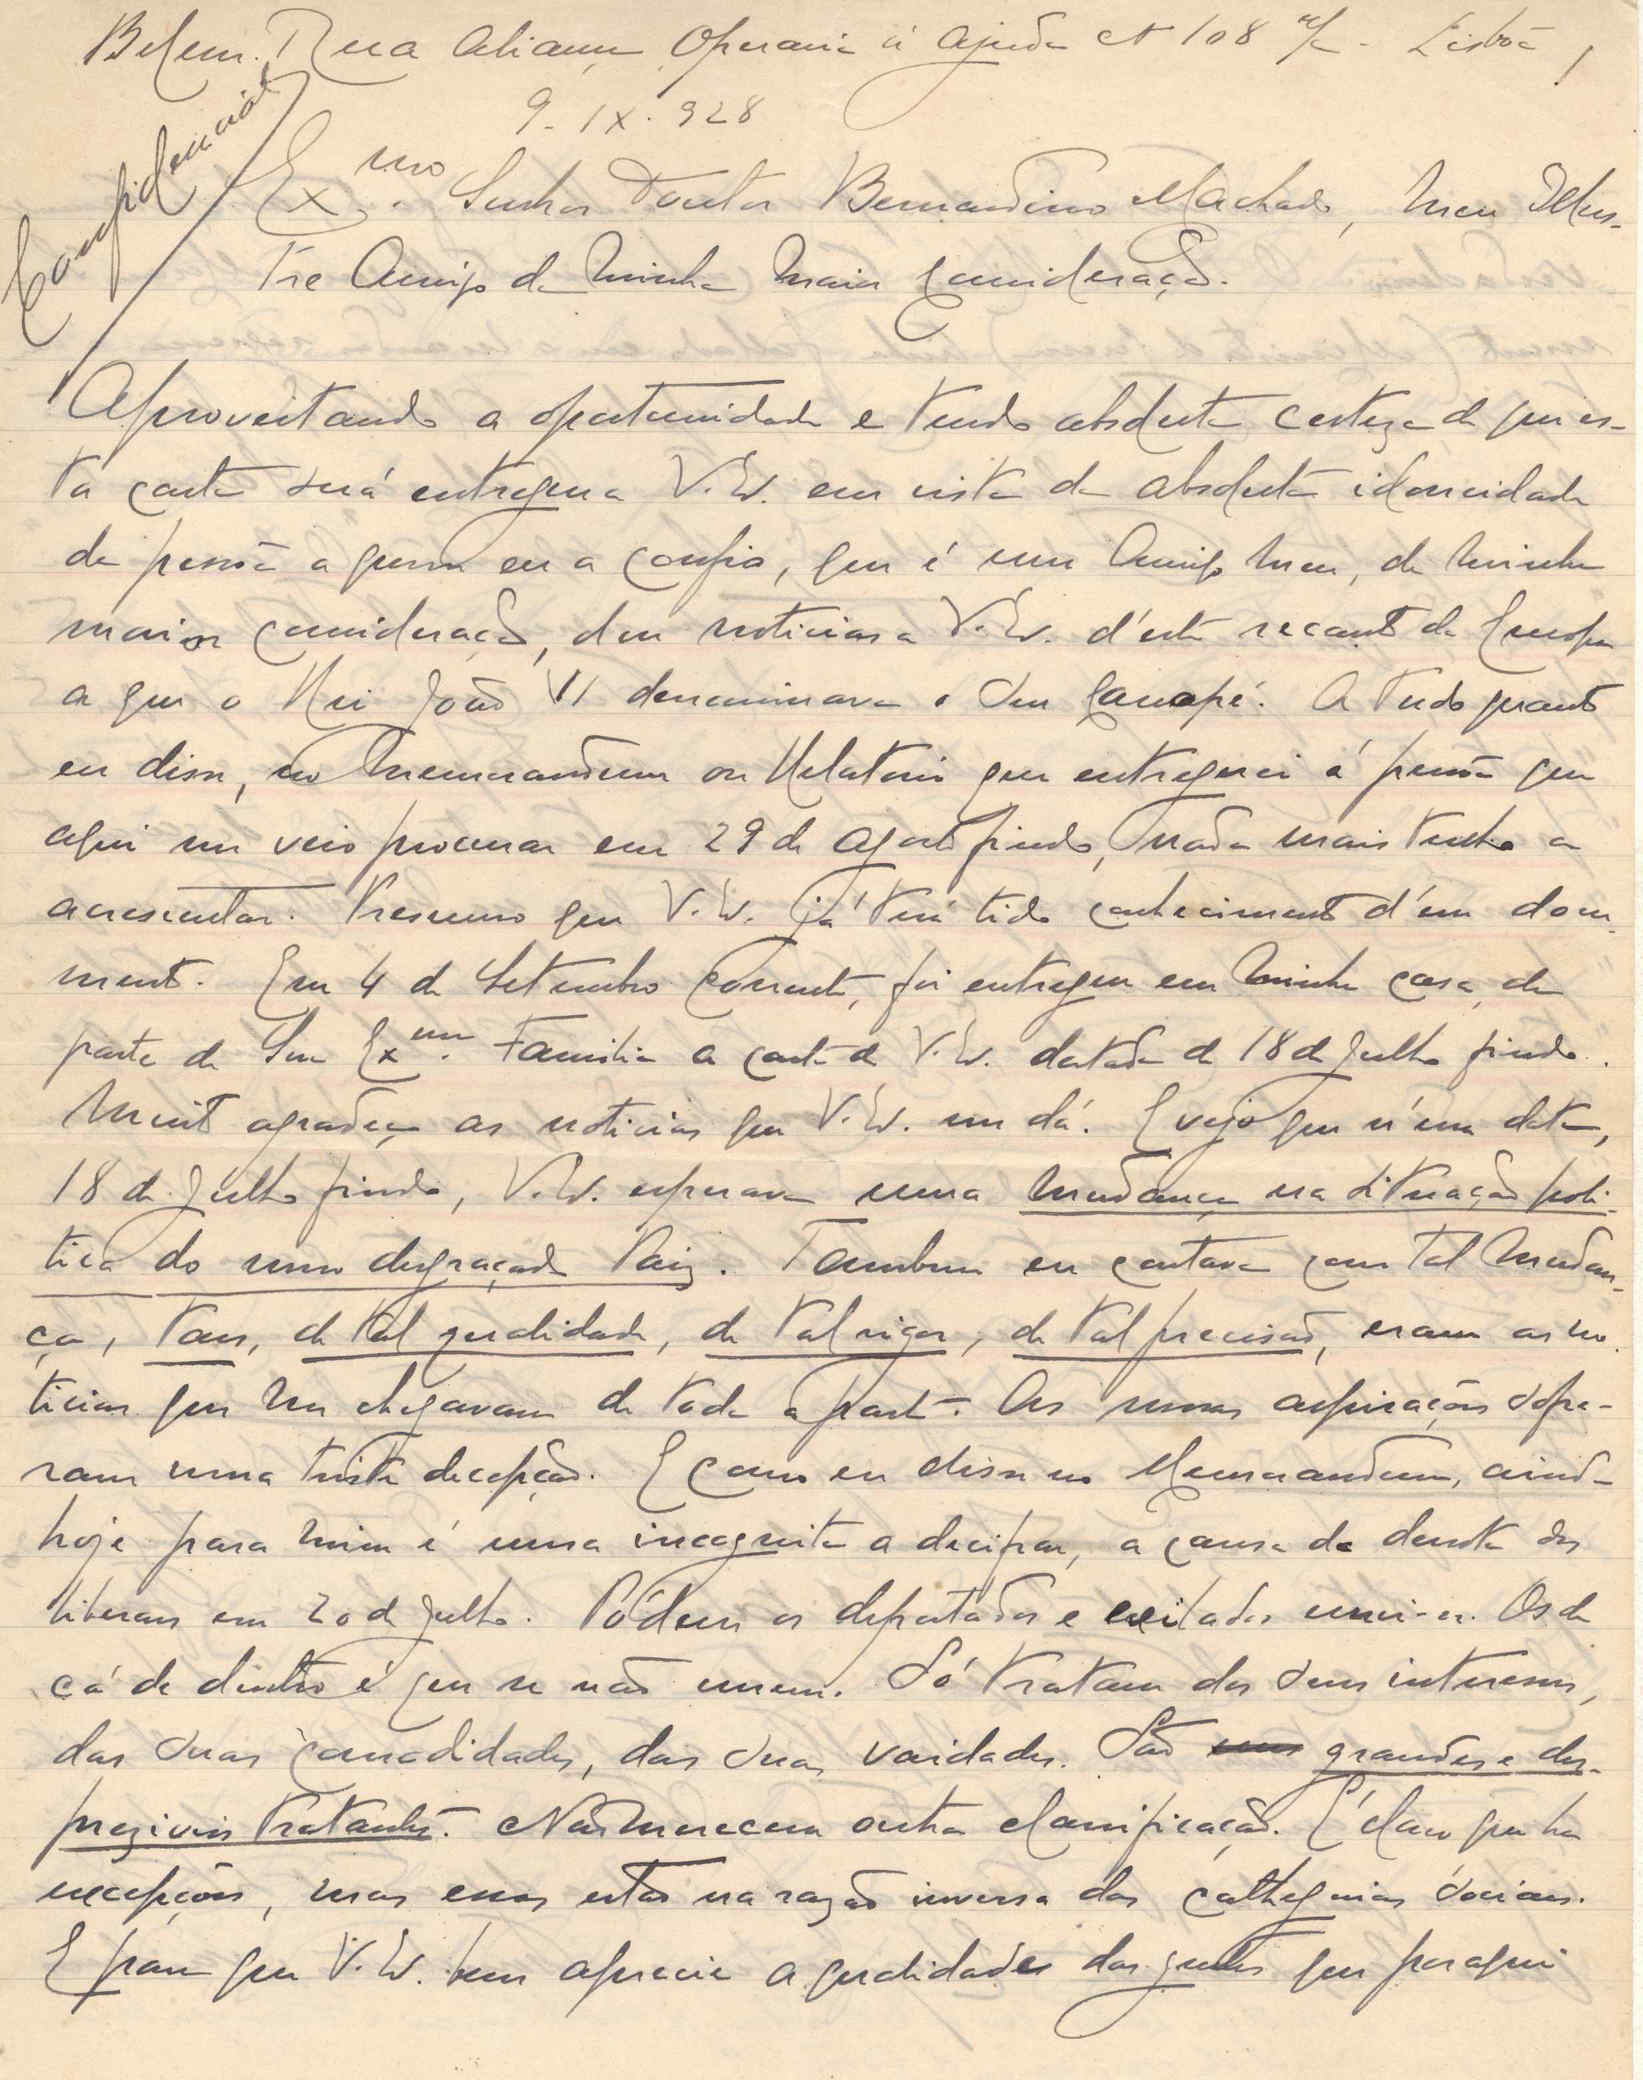 Belem. Rua Aliança Operaria á Ajuda Nº 108 r/c - Lisbôa,
9-IX-928
Confidencial
Exmo. Senhor Doutor Bernardino Machado, Meu Illus-
tre Amigo da Minha Maior Consideração.
Aproveitando a oportunidade e tendo absoluta certeza de que es-
ta carta será entregue a V. Ex. em vista da absoluta idoneidade
da pessôa a quem eu a confio, que é um Amigo Meu, da Minha
maior consideração, dou noticias a V. Ex. d'este recanto da Europa
a que o Rei João VI denominava o seu Canapé. A tudo quanto
eu disse, no Memorandum ou Relatorio que entreguei á pessôa que
aqui me veio procurar em 29 de Agosto findo, nada mais tenho a
acrescentar. Presumo que V. Ex. já terá tido conhecimento d'esse docu-
mento. Em 4 de Setembro Corrente, foi entregue em Minha casa, da
parte de Sua Exma. Familia a carta de V. Ex. datada de 18 de Julho findo.
Muito agradeço as noticias que V. Ex. me dá. E vejo que n'essa data,
18 de Julho findo, V. Ex. esperava uma mudança na situação poli-
tica do nosso desgraçado Paiz. Tambem eu contava com tal Mudan-
ça, taes, de tal qualidade, de tal rigor, de tal precisão, eram as no-
ticias que Me chegavam de toda a parte. As nossas aspirações sofre-
ram uma triste decepção. E como eu disse no Memorandum, ainda
hoje para Mim é uma incognita a decifrar, a causa da derrota dos
liberaes em 20 de Julho. Pódem os deportados e exilados unir-se. Os de
cá de dentro é que se não unem. Só tratam dos seus interesses,
das suas comodidades, das suas vaidades. São uns grandes e des-
preziveis tratantes. Não Merecem outra classificação. É claro que ha
excepções, mas essas estão na razão inversa das cathegorias sociaes.
E para que V. Ex. bem aprecie a qualidade das gentes que por aqui